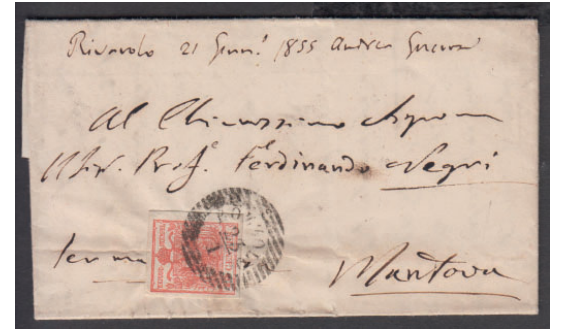 Rivarolo 21 Genn.º 1855 Andrea
Al Chiarissimo Signore
Prof.e Ferdinando Negri
Mantova